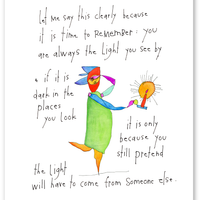 let me say this clearly because
it is time to REMEMBER: you
are always the Light you see by
& if it is
dark in the
places
you look
it is only
because you
still pretend
the light
will have to come from someone else.